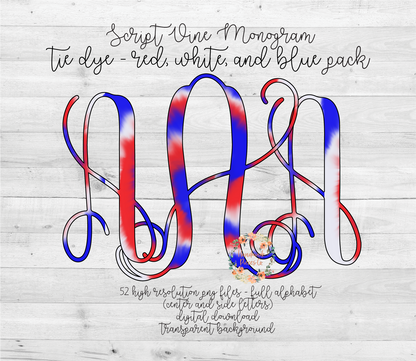 Script Vine Monogram
Tie dye - red, white, and blue pack
AAA
52 high resolution png files - full alphabet
(center and side letters)
digital download
Transparent background